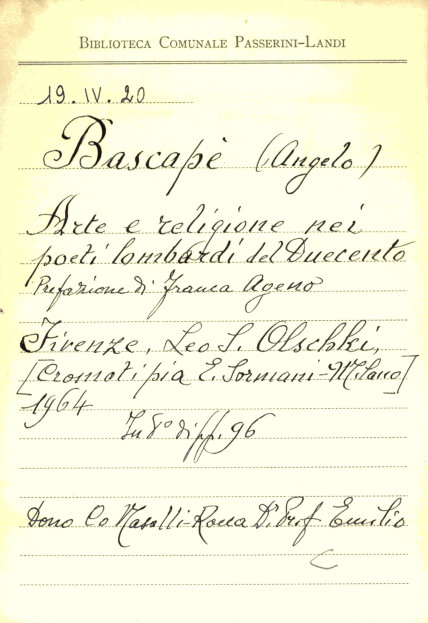 BIBLIOTECA COMUNALE PASSERINI-LANDI
19.IV.20
Bascapè (Angelo)
Arte e religione nei
poeti lombardi del Duecento
Prefazione di Franca Ageno
Firenze, Leo S. Olschki,
[Cromotipia E. Sormani-Milano]
1964
In 8° di pp. 96
Dono Co Nasalli-Rocca Dr Prof Emilio
C